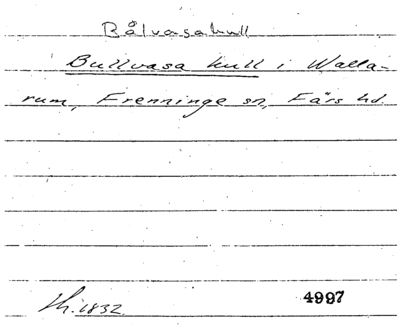 Bålvasakull
Bullvasa kull i Walla-
rum, Frenninge sn, Färs hd.
1832 4997